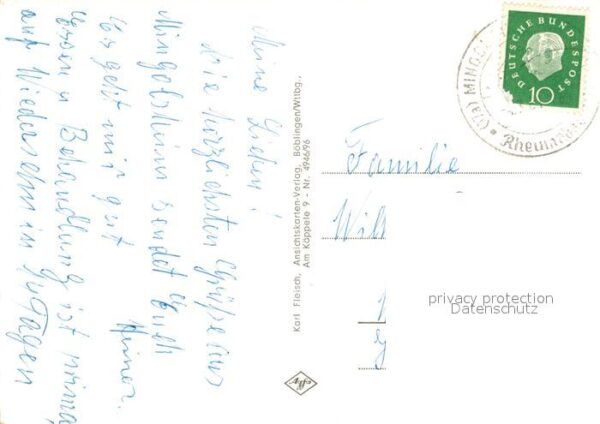 Meine Lieben!
die herzlichsten Grüße aus
Mingolsheim sendet Euch
Es geht mir gut
Essen u Behandlung ist prima
auf Wiedersehn in Tagen
Karl Fleisch, Ansichtskarten-Verlag, Böblingen/Wttbg.,
Am Käppele 9 - Nr. 4946/96
Agfa
DEUTSCHE BUNDESPOST
10
(17a) MINGOL
Rheuma
Familie
Will
privacy protection
Datenschutz